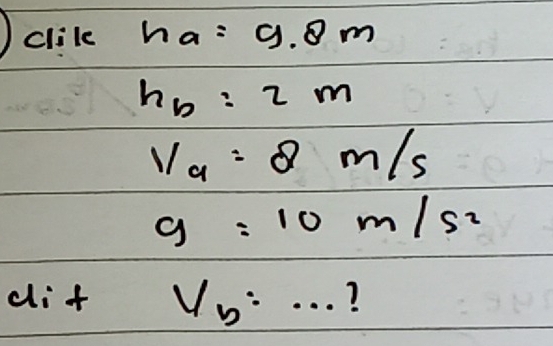 ) dik ha = 9.8 m
hb : 2 m
Va = 8 m/s
g : 10 m/s²
dit Vb : ...?